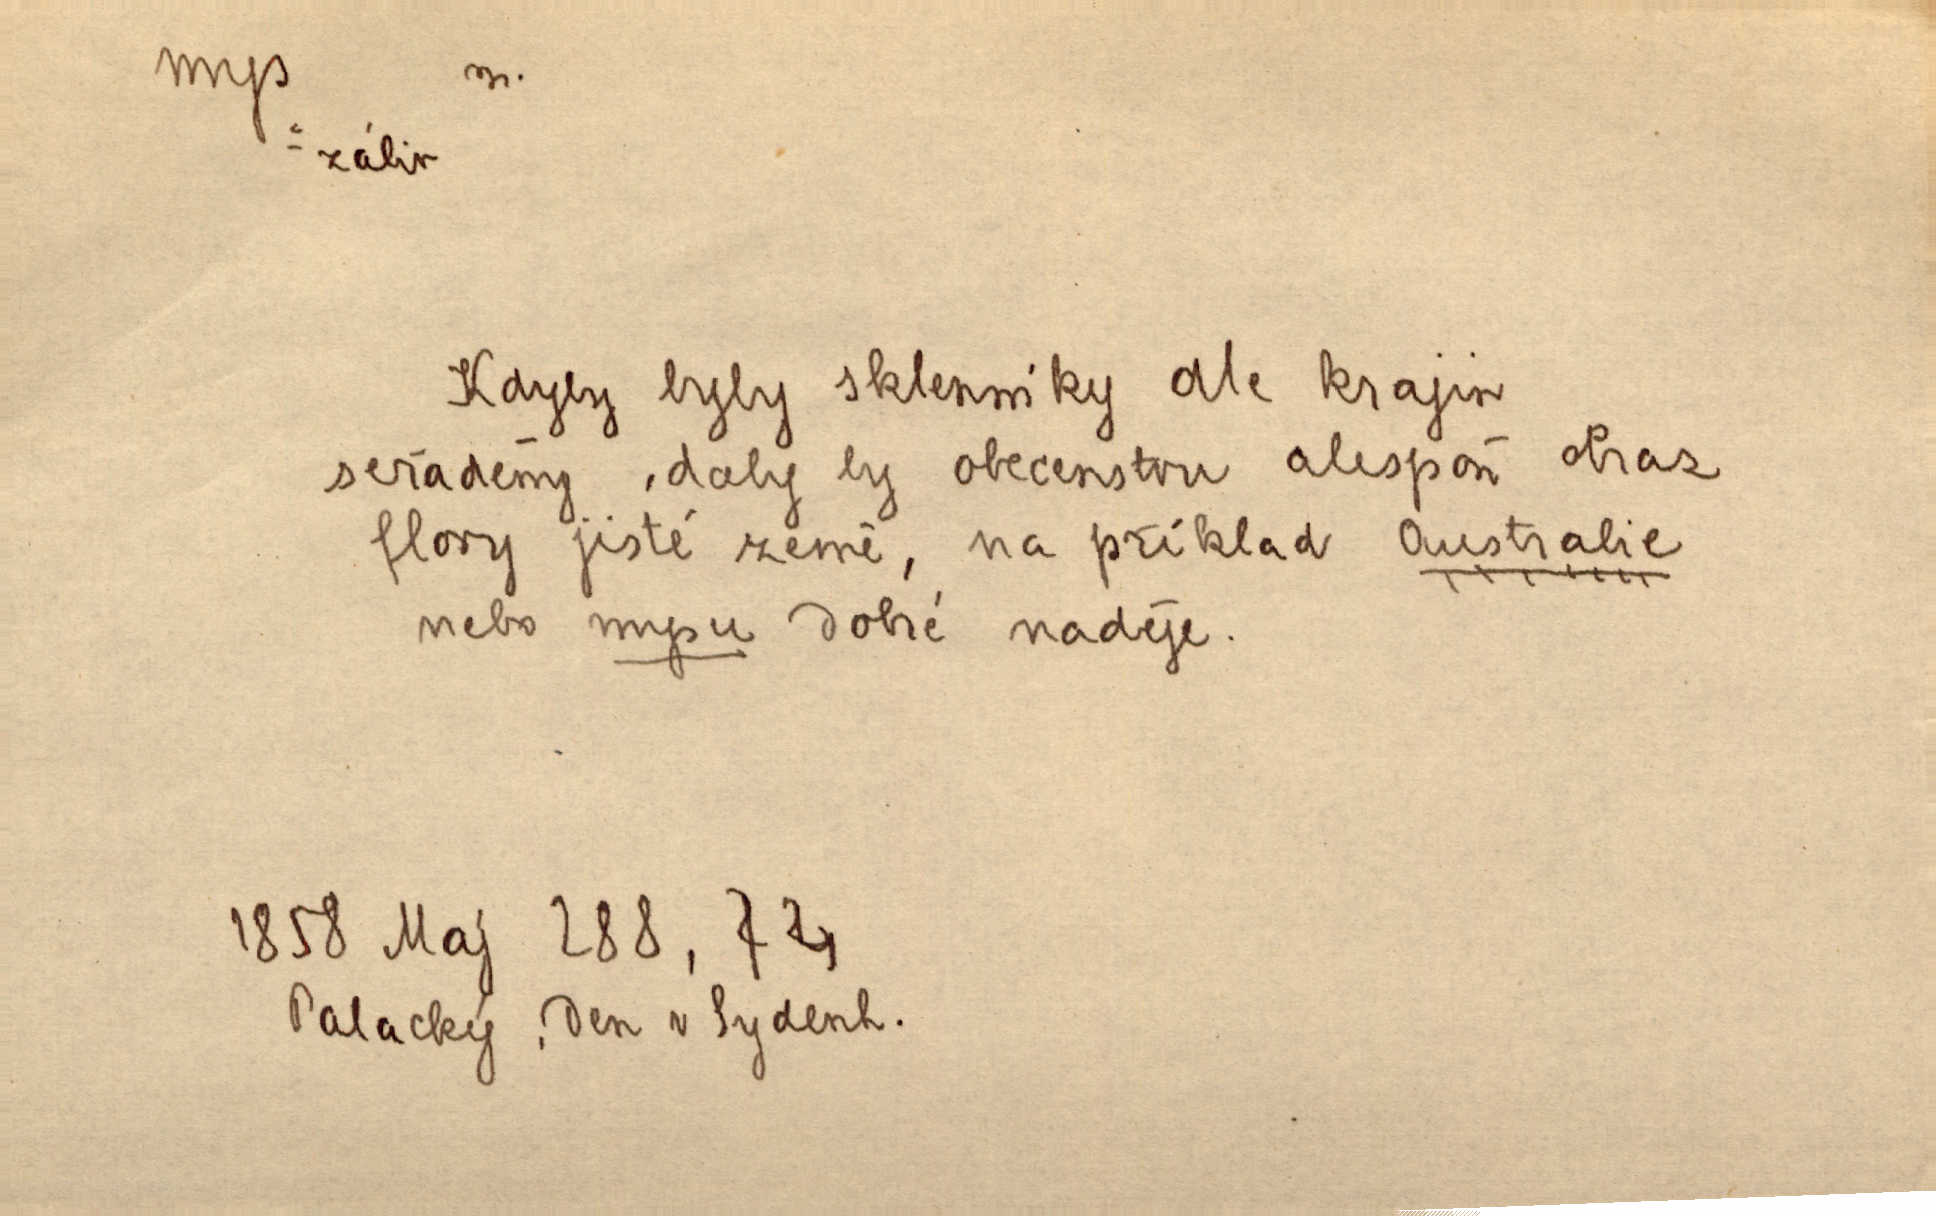 mys m.
= záliv
Kdyby byly sklenníky dle krajin
seřaděny, daly by obecenstvu alespoň obraz
flory jisté země, na příklad Australie
nebo mysu Dobré naděje.
1858 Maj 288, 72,
Palacký, Den v Sydenh.